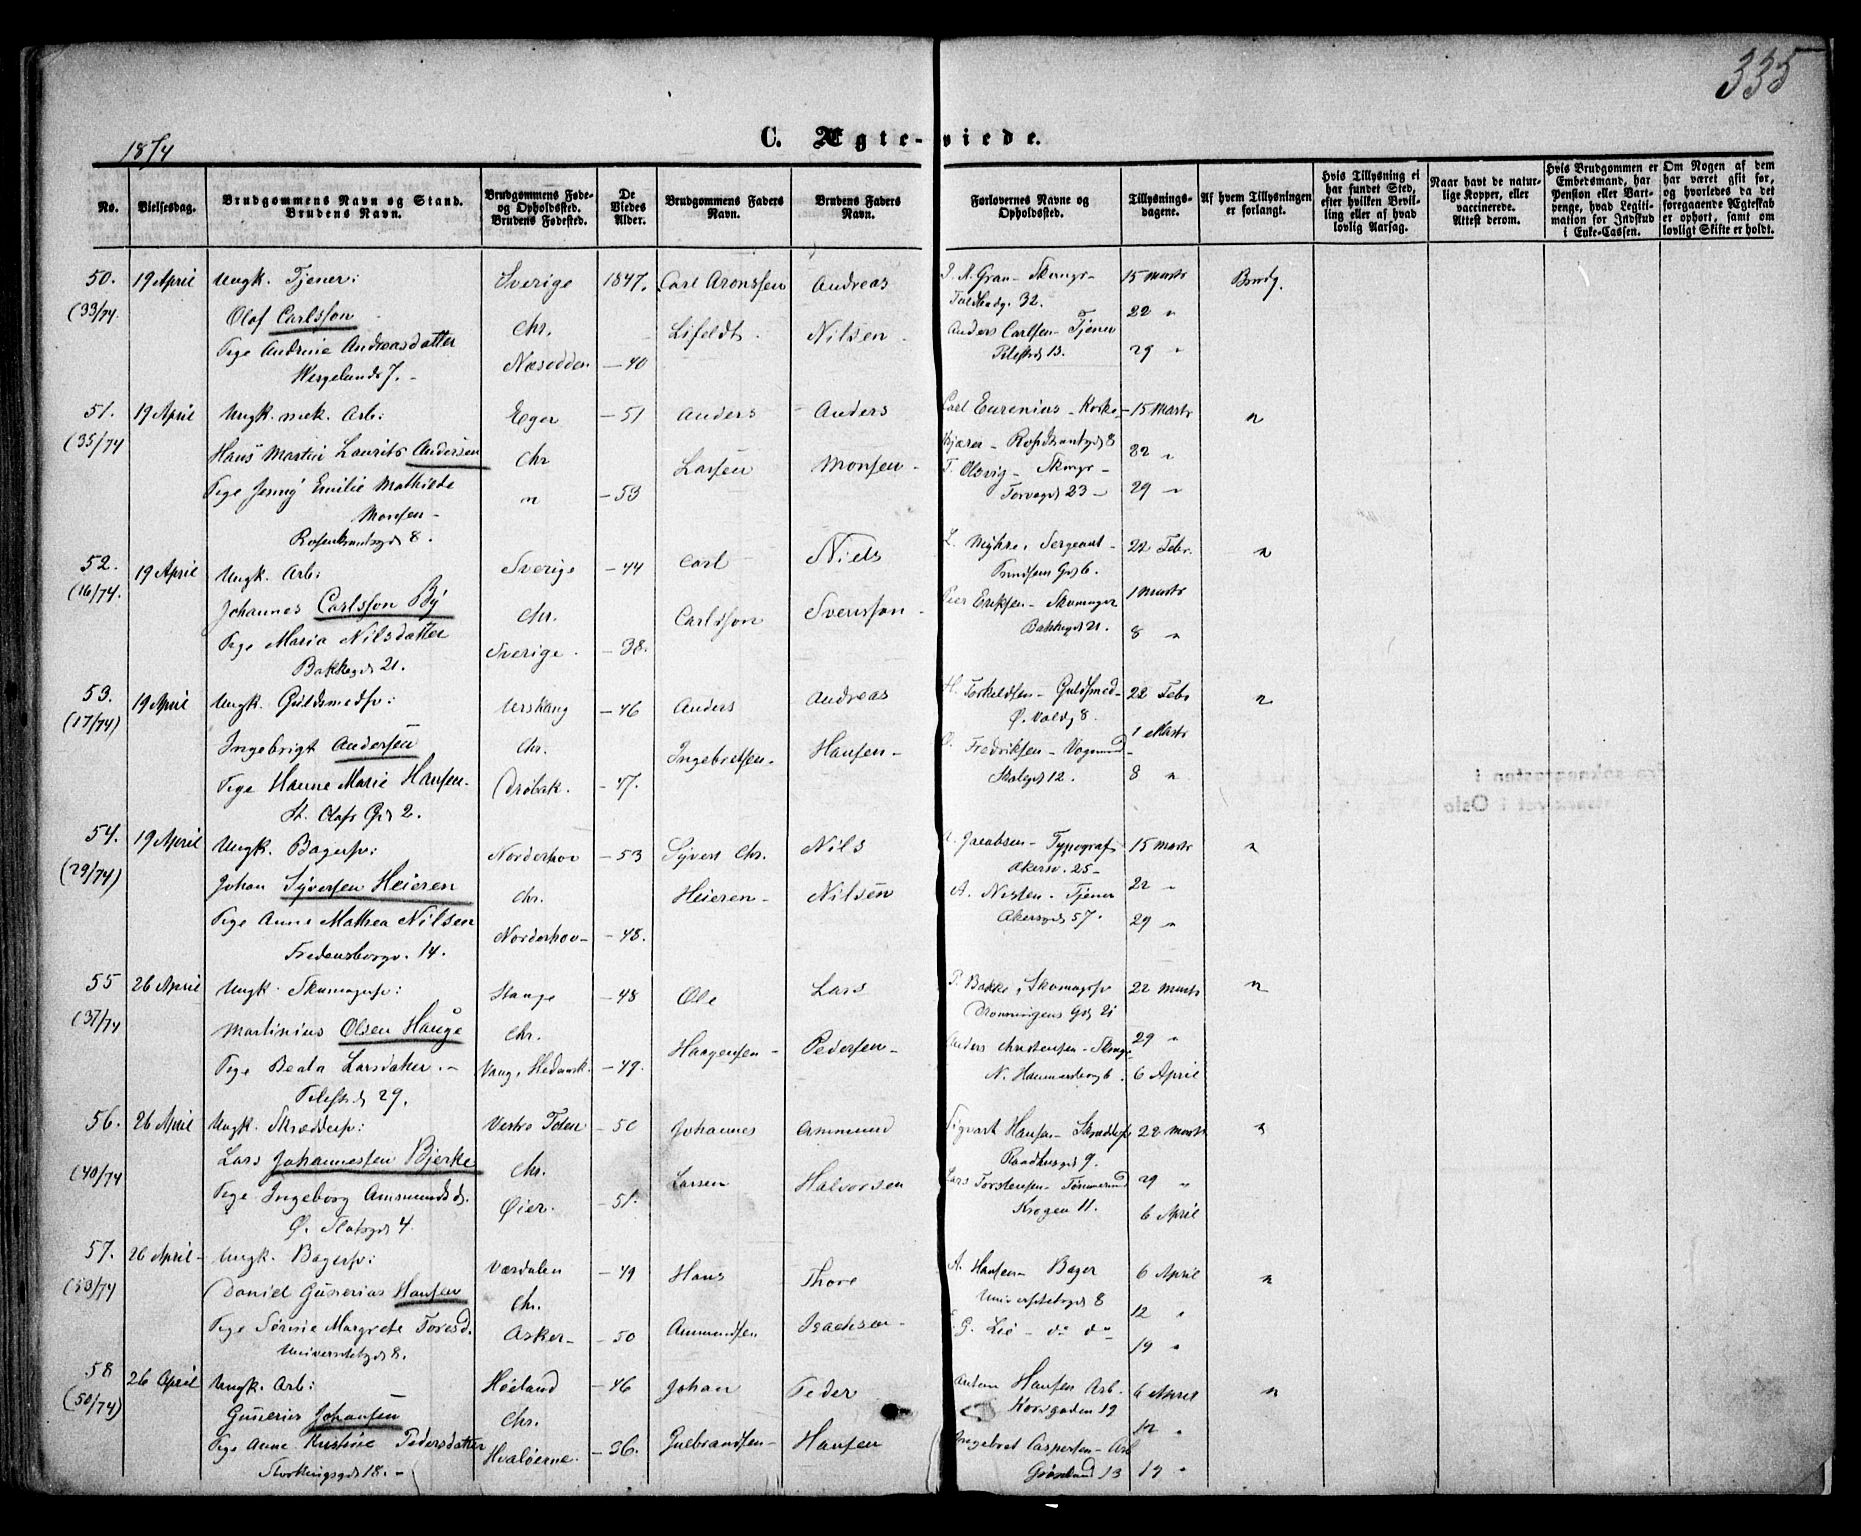 335
1874
C. Ægte-viede.
No.
Vielsesdag.
Brudgommens Navn og Stand.
Brudens Navn.
Brudgommens Føde- og Opholdssted.
Brudens Fødested.
De Viedes Alder.
Brudgommens Faders Navn.
Brudens Faders Navn.
Forlovernes Navne og Opholdssted.
Tillysningsdagene.
Af hvem Tillysningen er forlangt.
Hvis Tillysning ei har fundet Sted, efter hvilken Bevilling eller af hvad lovlig Aarsag.
Naar havt de naturlige Kopper, eller vaccinerede. Attest derom.
Hvis Brudgommen er Embedsmand, har Pension eller Vartpenge, hvad Legitimation for Indskud i Enke-Cassen.
Om Nogen af dem har været gift før, og hvorledes da det foregaaende Ægteskab er ophørt, samt om lovligt Skifte er holdt.
50. 19 April Ungk. Tjener: Sverige 1847. Carl Aronssen Andreas J. A. Gran - Skomgr - 15 Marts Brudg.
(33/74. Olaf Carlsson Chr. Lifeldt. Nilsen. Toldbodg. 32. 22 "
Pige Andrine Andreasdatter Næsodden - 40 Anders Carlsen - Tjener 29 "
Wergelands 7. - 13.
51. 19 April Ungk. mek. Arb: Eger - 51 Anders Anders Carl Eurenius - 15 Marts "
(35/74 Hans Martin Laurits Andersen Chr Larsen Monsen - 8 22 "
Pige Jenny Emilie Mathilde " - 53 T. Olsvig - Skomgr - 29 "
Monsen - Torvgd 23 -
Rosenkrantzgd 8.
52. 19 April Ungk. Arb: Sverige - 44 Carl Niels L. Myhre, Sergeant - 22 Febr. "
(16/74. Johannes Carlsson By Chr. Carlsson Svensson - 6. 1 Marts
Pige Maria Nilsdatter Sverige. - 38. Eriksen - Skomager 8 "
Bakkegd 21. Bakkegd 21.
53. 19 April Ungk. Guldsmedsv: Urskoug - 46 Anders Andreas H. Torkeldsen - Guldsmed - 22 Febr "
(17/74) Ingebrigt Andersen Chr. Ingebretsen. Hansen - Ø. Voldg 8. 1 Marts
Pige Hanne Marie Hansen. Drøbak. - 47. Fredriksen - Vognmd - 8 "
St. Olafs Gd 2. 12.
54. 19 April Ungk. Bagersv: Norderhov - 53 Syvert Chr. Nils Jacobsen - Typograf 15 Marts "
(29/74) Johan Syversen Heieren Chr. Heieren - Nilsen Akersv. 25 - 22 "
Pige Anne Mathea Nilsen Norderhov - - 48. A. Nisten. Tjener 29 "
Fredensborgv. 14. Akersgd 57.
55 26 April Ungk. Skomagersv: Stange - 48 Ole Lars P. Bakke, Skomagsv 22 Marts "
(37/74 Martinius Olsen Hauge Chr. Haagensen - Pedersen - Dronningens Gd 21 29 "
Pige Beata Larsdatter. - Vang, Hedmark. - 49. Anders Christensen - Skmgr 6 April
29. N. Hammersborg 6.
56. 26 April Ungk. Skræddersv: Vestre Toten - 50 Johannes Ammund Sigvart Hansen - Skræddsv 22 Marts "
(40/74 Lars Johannessen Bjerke Chr. Larsen Halvorsen Raadhusgd 9. 29 "
Pige Ingeborg Amsmundsd. Øier. - 51. Lars Torstensen - Tømmermd 6 April
Ø. Slotsgd 4. Krogen 11.
57. 26 April - Ungk. Bagersv: Værdalen - 49 Hans Thore A. Hansen - Bager 6 April "
(53/74 Daniel Gunerius Hansen Chr. Ammundsen Isachsen - Universitetsgd 8 12 "
Pige Sørine Margrete Toresd. Asker - - 50 G. Lie - do do 19 "
Universitetsgd 8.
58 26 April Ungk. Arb: Høiland - 46 Johan Peder Anton Hansen Arb. 6 April "
(50/74) Gunerius Johansen Chr. Gulbrandsen - Hansen Korsgaden 19 12 "
Pige Anne Kristine Pedersdatter Hvaløerne. - 36. Ingebret Caspersen - Arb 19 "
18. - Grønland 13